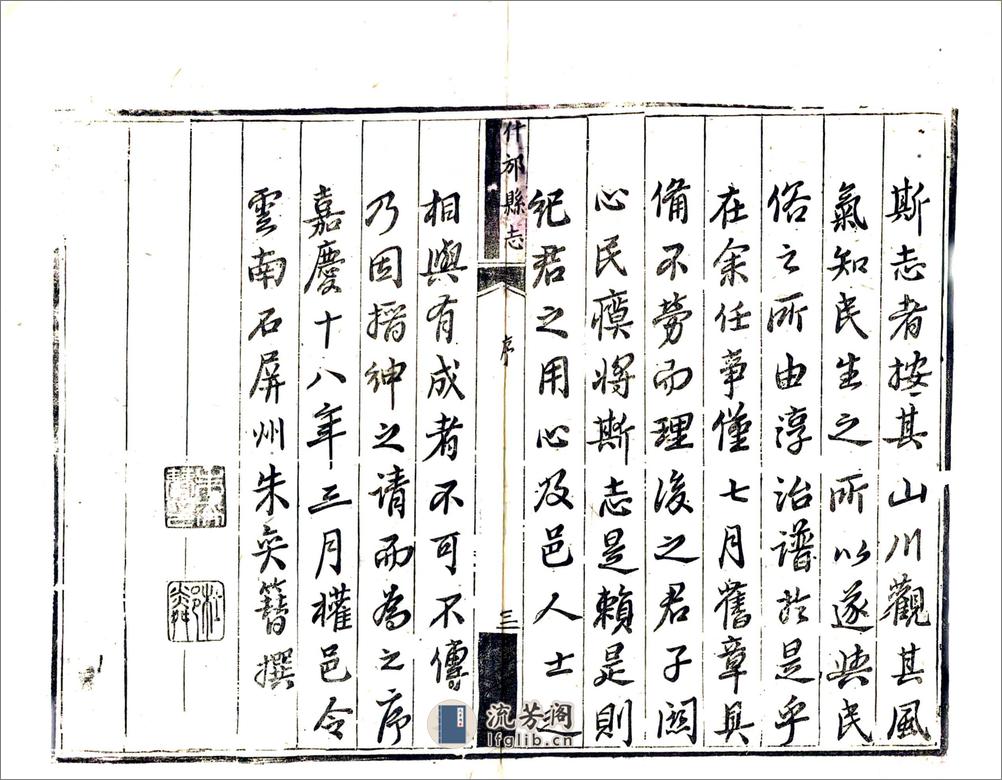 斯志者按其山川觀其風
氣知民生之所以遂與民
俗之所由淳治譜於是乎
在余任事僅七月舊章具
備不勞而理後之君子關
心民瘼將斯志是賴是則
紀君之用心及邑人士之
什邡縣志
序
三
相與有成者不可不傳
乃因搢紳之请而為之序
嘉慶十八年三月權邑令
雲南石屏州朱奕簪撰
流芳阁
lfglib.cn